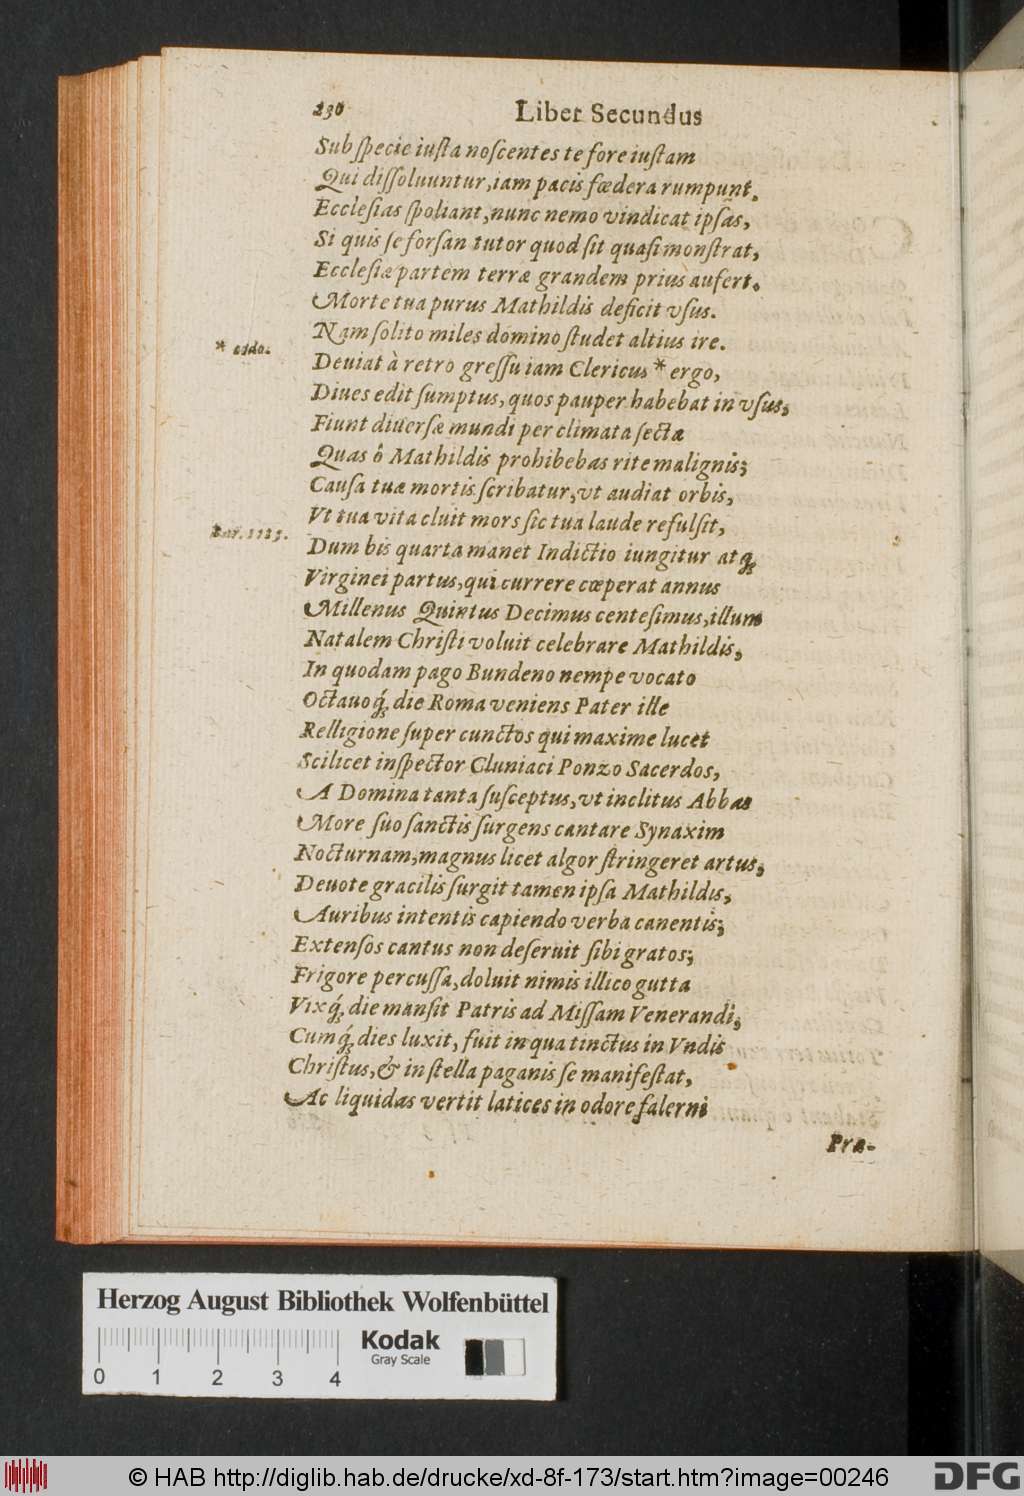 230 Liber Secundus
Sub ſpecie iuſta noſcentes te fore iuſtam
Qui diſſoluuntur, iam pacis fœdera rumpunt.
Eccleſias ſpoliant, nunc nemo vindicat ipſas,
Si quis ſe forſan tutor quod ſit quaſi monſtrat,
Eccleſiæ partem terræ grandem prius aufert.
Morte tua purus Mathildis deficit vſus.
Nam ſolito miles domino ſtudet altius ire.
* ordo.
Deuiat à retro greſſu iam Clericus * ergo,
Diues edit ſumptus, quos pauper habebat in vſus,
Fiunt diuerſæ mundi per climata ſectæ
Quas ô Mathildis prohibebas rite malignis;
Cauſa tuæ mortis ſcribatur, vt audiat orbis,
Vt tua vita cluit mors ſic tua laude refulſit,
Dum bis quarta manet Indictio iungitur atq́;
Virginei partus, qui currere cœperat annus
Millenus Quintus Decimus centeſimus, illum
Natalem Chriſti voluit celebrare Mathildis,
In quodam pago Bundeno nempe vocato
Octauoq́; die Roma veniens Pater ille
Relligione ſuper cunctos qui maxime lucet
Scilicet inſpector Cluniaci Ponzo Sacerdos,
A Domina tanta ſuſceptus, vt inclitus Abbas
More ſuo ſanctis ſurgens cantare Synaxim
Nocturnam, magnus licet algor ſtringeret artus,
Deuote gracilis ſurgit tamen ipſa Mathildis,
Auribus intentis capiendo verba canentis;
Extenſos cantus non deſeruit ſibi gratos;
Frigore percuſſa, doluit nimis illico gutta
Vixq́; die manſit Patris ad Miſſam Venerandi,
Cumq́; dies luxit, fuit in qua tinctus in Vndis
Chriſtus, & in ſtella paganis ſe manifeſtat,
Ac liquidas vertit latices in odore falerni
Præ-
Herzog August Bibliothek Wolfenbüttel
Kodak
Gray Scale
0 1 2 3 4
© HAB http://diglib.hab.de/drucke/xd-8f-173/start.htm?image=00246
DFG